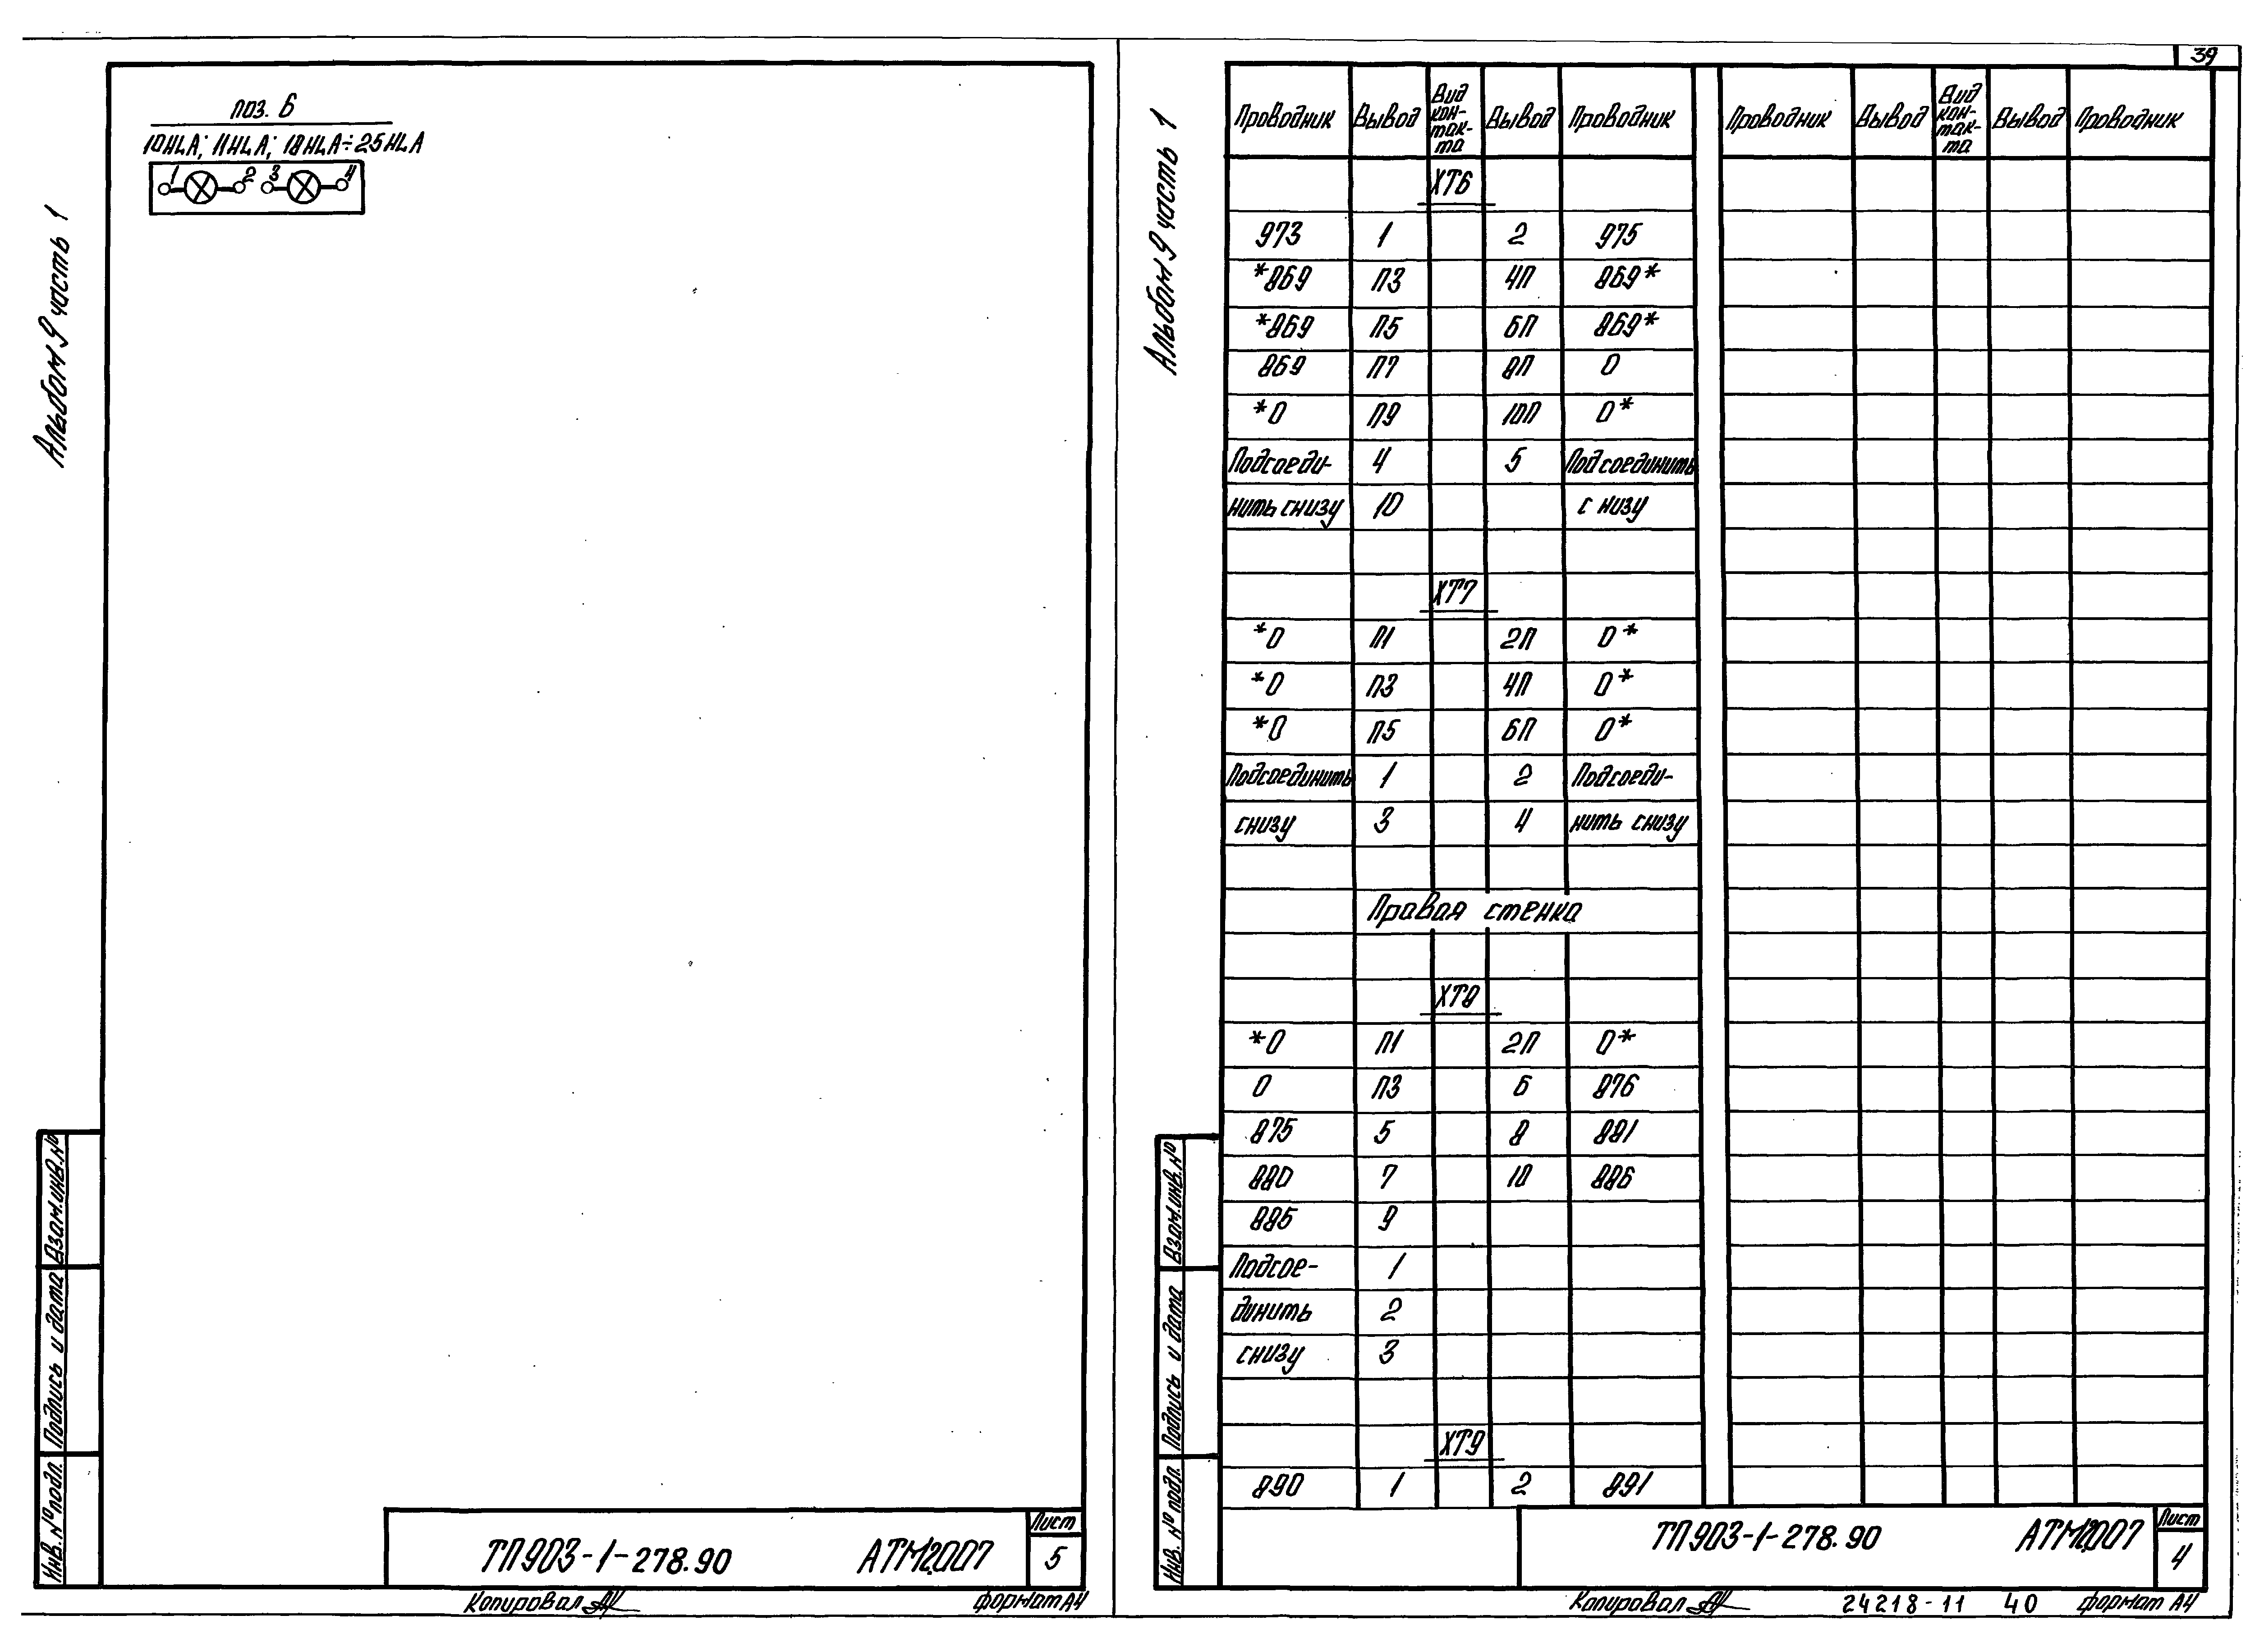 Альбом 9 часть 1
поз. 6
10HLA; 11HLA; 18HLA÷25HLA
1 2 3 4
Взам.инв.№
Подпись и дата
Инв. № подл.
ТП903-1-278.90 АТМ2.007
Лист
5
Копировал
формат А4
39
Альбом 9 часть 1
Проводник Вывод Вид кон-так-та Вывод Проводник Проводник Вывод Вид кон-так-та Вывод Проводник
ХТ6
973 1 2 975
*869 П3 4П 869*
*869 П5 6П 869*
869 П7 8П 0
*0 П9 10П 0*
Подсоеди- 4 5 Подсоединить
нить снизу 10 с низу
ХТ7
*0 П1 2П 0*
*0 П3 4П 0*
*0 П5 6П 0*
Подсоединить 1 2 Подсоеди-
снизу 3 4 нить снизу
Правая стенка
ХТ8
*0 П1 2П 0*
0 П3 6 876
875 5 8 881
880 7 10 886
885 9
Подсое- 1
динить 2
снизу 3
ХТ9
890 1 2 891
Взам.инв.№
Подпись и дата
Инв. № подл.
ТП903-1-278.90 АТМ2.007
Лист
4
Копировал
24218-11 40 формат А4